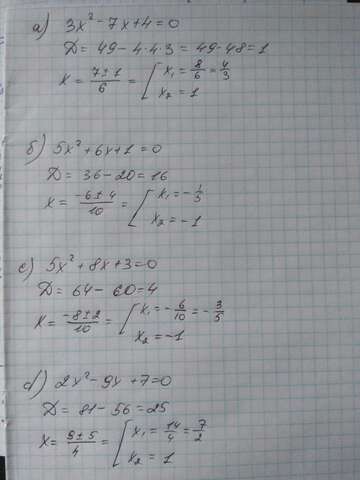 а) 3x² - 7x + 4 = 0
D = 49 - 4·4·3 = 49 - 48 = 1
x = (7 ± 1)/6 = [ x₁ = 8/6 = 4/3
x₂ = 1
б) 5x² + 6x + 1 = 0
D = 36 - 20 = 16
x = (-6 ± 4)/10 = [ x₁ = -1/5
x₂ = -1
c) 5x² + 8x + 3 = 0
D = 64 - 60 = 4
x = (-8 ± 2)/10 = [ x₁ = -6/10 = -3/5
x₂ = -1
d) 2x² - 9x + 7 = 0
D = 81 - 56 = 25
x = (9 ± 5)/4 = [ x₁ = 14/4 = 7/2
x₂ = 1